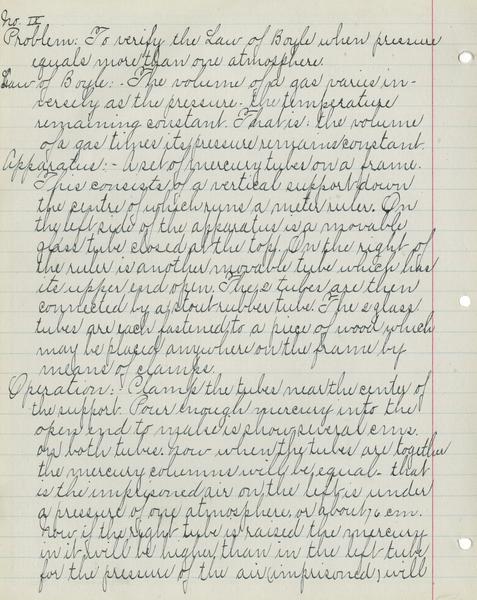 No. IX
Problem: To verify the Law of Boyle when pressure
equals more than one atmosphere.
Law of Boyle: - The volume of a gas varies in-
versely as the pressure - the temperature
remaining constant. That is: the volume
of a gas times its pressure remains constant.
Apparatus: - A set of mercury tubes on a frame.
This consists of a vertical support down
the centre of which runs a meter ruler. On
the left side of the apparatus is a movable
glass tube closed at the top. On the right of
the ruler is another movable tube which has
its upper end open. These tubes are then
connected by a stout rubber tube. The 2 glass
tubes are each fastened to a piece of wood which
may be placed anywhere on the frame by
means of clamps.
Operation: - Clamp the tubes near the center of
the support. Pour enough mercury into the
open end to make it show several cms.
on both tubes. Now when the tubes are together
the mercury columns will be equal - that
is the imprisoned air on the left is under
a pressure of one atmosphere, or about 76 cm.
Now if the right tube is raised the mercury
in it will be higher than in the left tube
for the pressure of the air (imprisoned) will